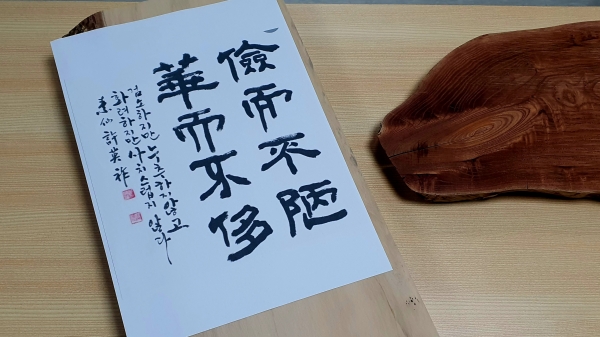 儉而不陋
華而不侈
검소하지만 누추하지 않고
화려하지만 사치스럽지 않다
許英祚